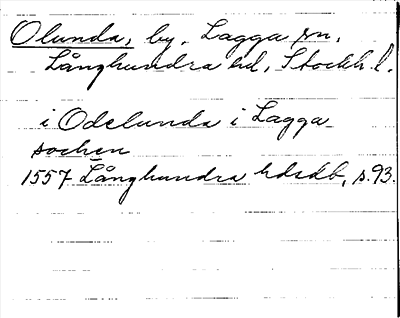 Olunda, by, Lagga sn,
Långhundra hd, Stockh. l.
i Odelunda i Lagga
sochen
1557 Långhundra hdsdb, s. 93.